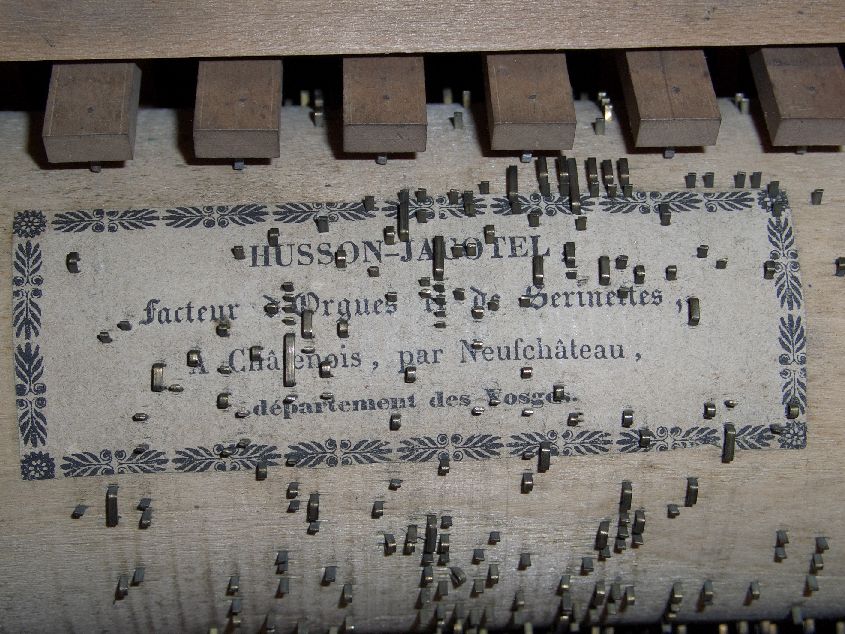 HUSSON-JACOTEL
facteur d'Orgues et de Serinettes,
A Châtenois, par Neufchâteau,
département des Vosges.